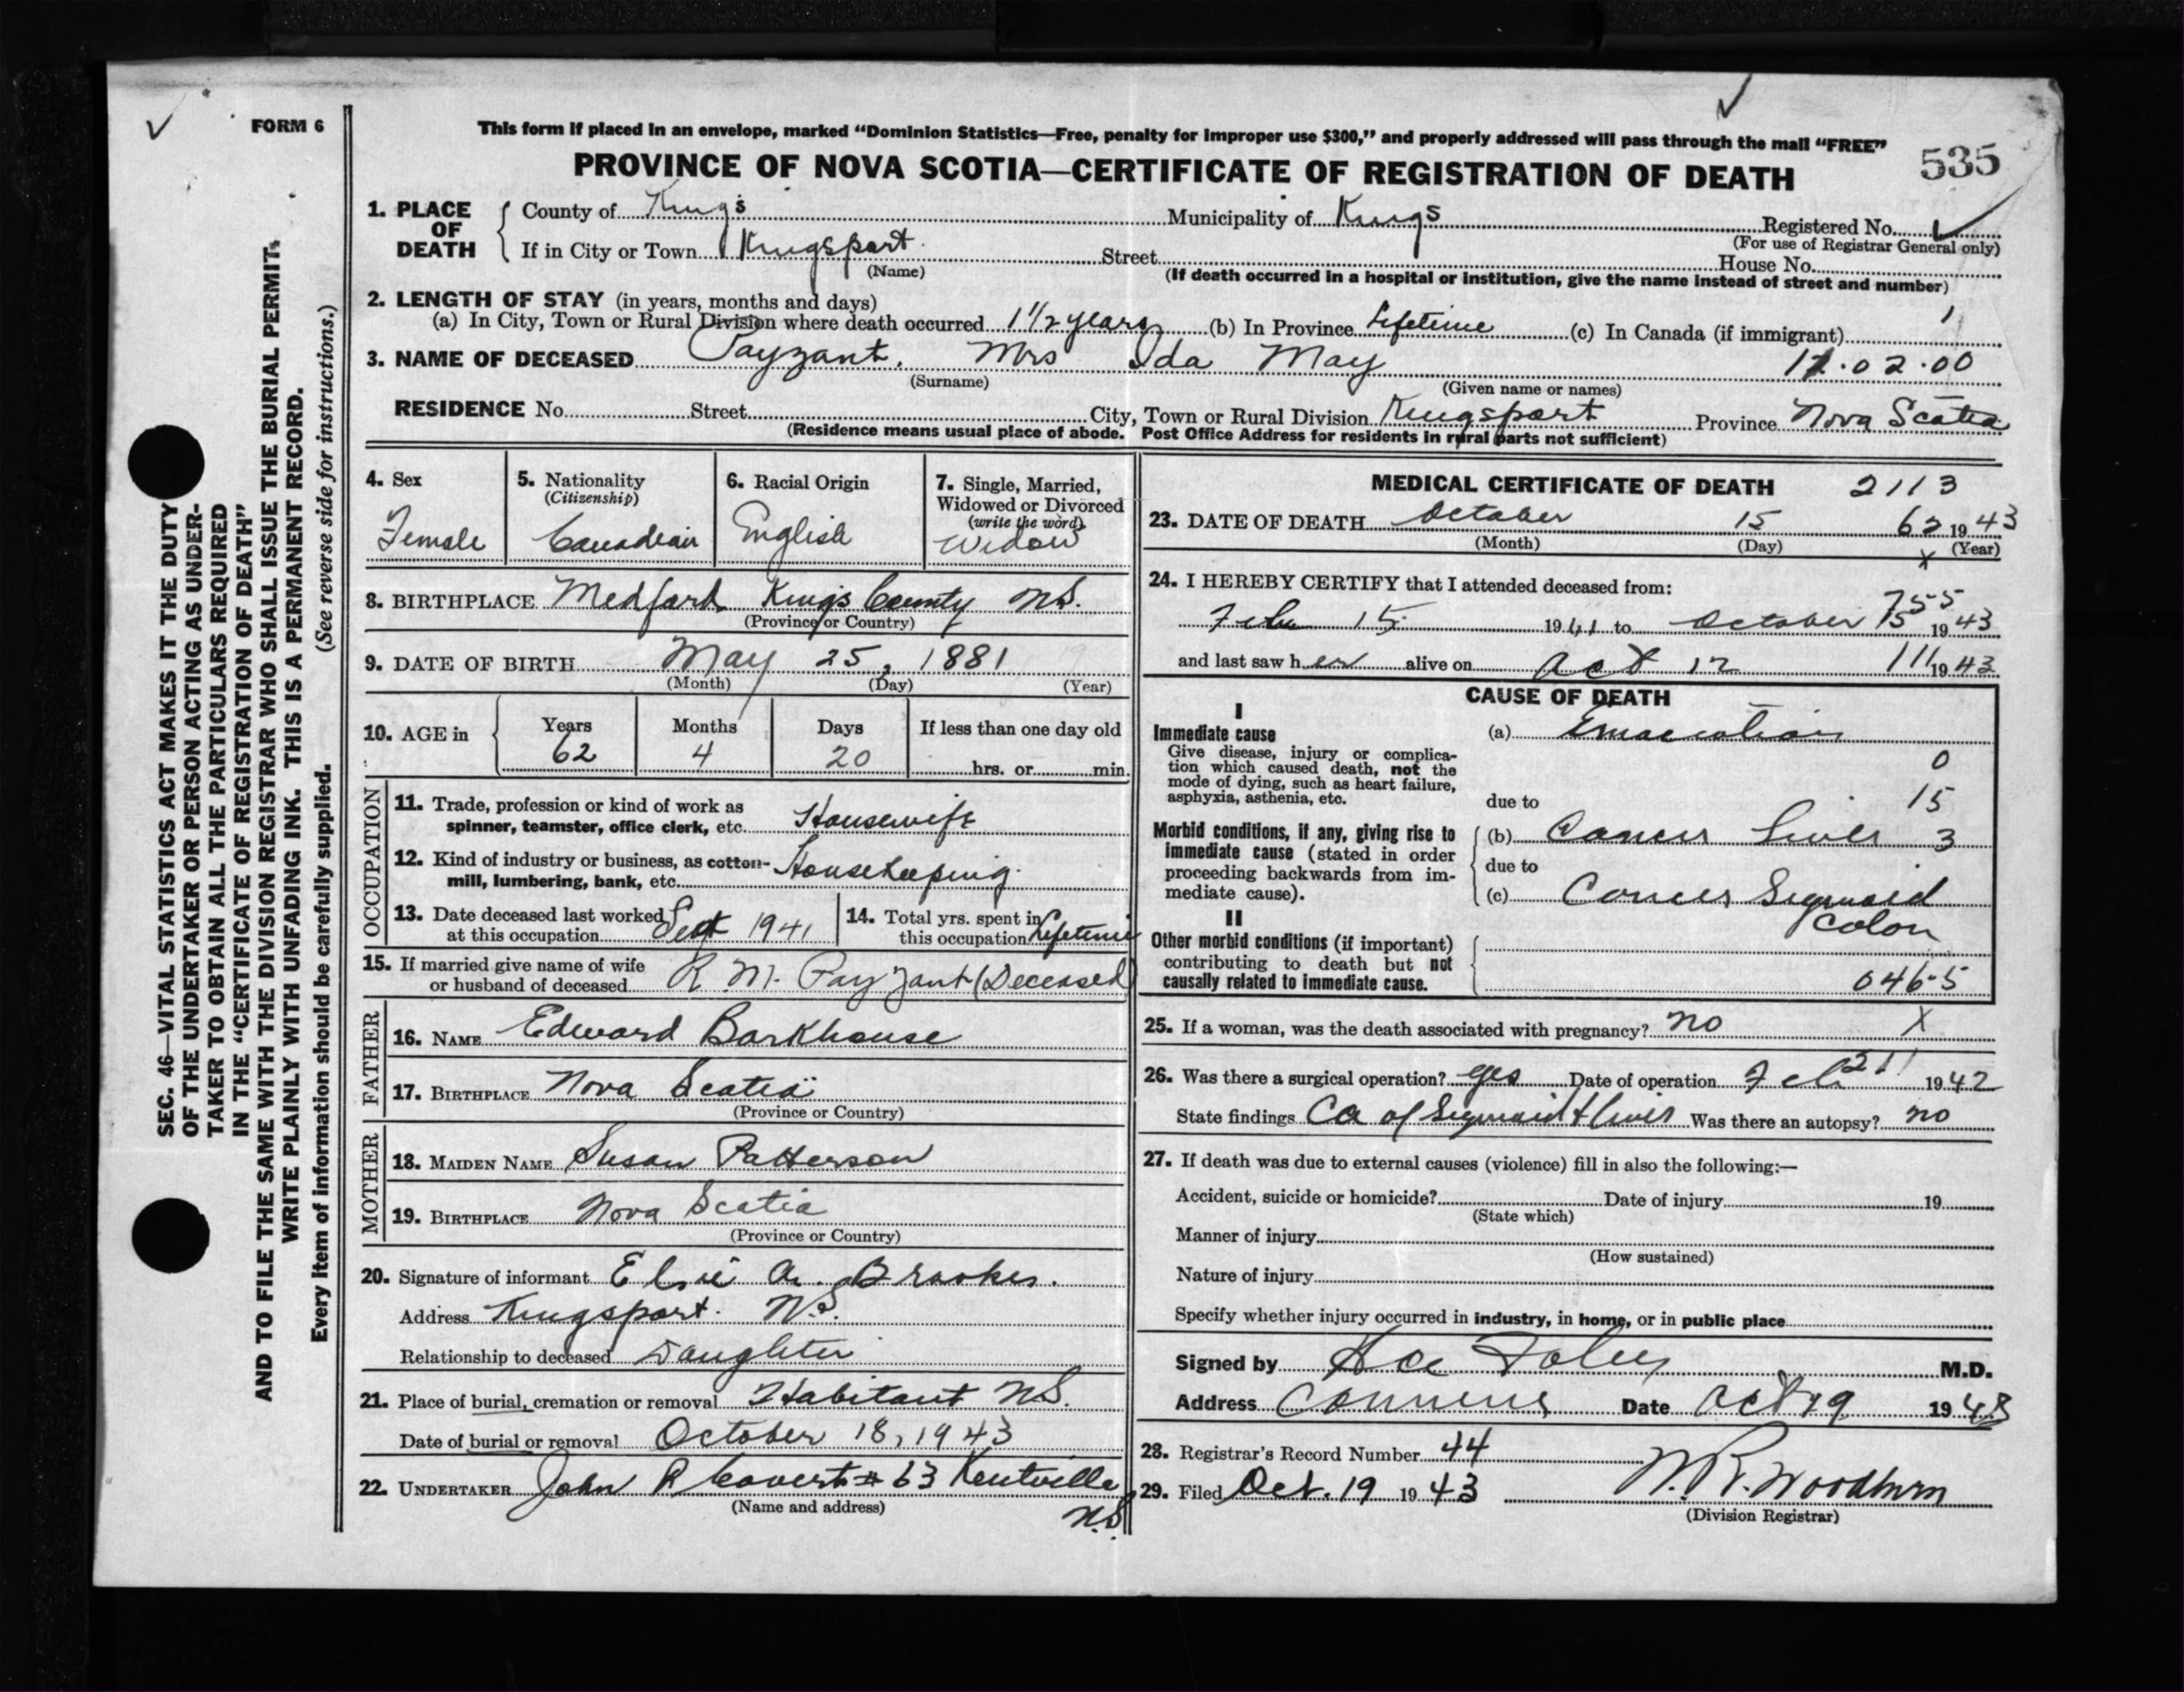 FORM 6
This form if placed in an envelope, marked “Dominion Statistics—Free, penalty for improper use $300,” and properly addressed will pass through the mail “FREE”
PROVINCE OF NOVA SCOTIA—CERTIFICATE OF REGISTRATION OF DEATH
535
1. PLACE OF DEATH
County of Kings Municipality of Kings Registered No.
(For use of Registrar General only)
If in City or Town Kingsport Street House No.
(Name) (If death occurred in a hospital or institution, give the name instead of street and number)
2. LENGTH OF STAY (in years, months and days)
(a) In City, Town or Rural Division where death occurred 1 1/2 years (b) In Province Lifetime (c) In Canada (if immigrant)
3. NAME OF DECEASED Payzant, Mrs Ida May 12.02.00
(Surname) (Given name or names)
RESIDENCE No. Street City, Town or Rural Division Kingsport Province Nova Scotia
(Residence means usual place of abode. Post Office Address for residents in rural parts not sufficient)
4. Sex
Female
5. Nationality
(Citizenship)
Canadian
6. Racial Origin
English
7. Single, Married,
Widowed or Divorced
(write the word)
Widow
8. BIRTHPLACE Medford King's County N.S.
(Province or Country)
9. DATE OF BIRTH May 25, 1881
(Month) (Day) (Year)
10. AGE in
Years Months Days If less than one day old
62 4 20 hrs. or min.
OCCUPATION
11. Trade, profession or kind of work as
spinner, teamster, office clerk, etc. Housewife
12. Kind of industry or business, as cotton-
mill, lumbering, bank, etc. Housekeeping
13. Date deceased last worked
at this occupation Sept 1941
14. Total yrs. spent in
this occupation Lifetime
15. If married give name of wife
or husband of deceased R. M. Payzant (Deceased)
FATHER
16. NAME Edward Barkhouse
17. BIRTHPLACE Nova Scotia
(Province or Country)
MOTHER
18. MAIDEN NAME Susan Patterson
19. BIRTHPLACE Nova Scotia
(Province or Country)
20. Signature of informant Elsie A. Brookes.
Address Kingsport. N.S.
Relationship to deceased Daughter
21. Place of burial, cremation or removal Habitant N.S.
Date of burial or removal October 18, 1943
22. UNDERTAKER John R Covert # 63 Kentville
N.S.
(Name and address)
MEDICAL CERTIFICATE OF DEATH 2113
23. DATE OF DEATH October 15 62 1943
(Month) (Day) (Year)
24. I HEREBY CERTIFY that I attended deceased from:
755
Feb 15 1941 to October 15 1943
and last saw her alive on Oct 12 111 1943
CAUSE OF DEATH
I
Immediate cause
Give disease, injury or complica-
tion which caused death, not the
mode of dying, such as heart failure,
asphyxia, asthenia, etc.
(a) Emaciation
0
due to 15
Morbid conditions, if any, giving rise to
immediate cause (stated in order
proceeding backwards from im-
mediate cause).
(b) Cancer Liver 3
due to
(c) Cancer Sigmoid
Colon
II
Other morbid conditions (if important)
contributing to death but not
causally related to immediate cause.
046-5
25. If a woman, was the death associated with pregnancy? no X
26. Was there a surgical operation? yes Date of operation Feb 21 1942
State findings Ca of Sigmoid & liver Was there an autopsy? no
27. If death was due to external causes (violence) fill in also the following:—
Accident, suicide or homicide? Date of injury 19
(State which)
Manner of injury
(How sustained)
Nature of injury
Specify whether injury occurred in industry, in home, or in public place
Signed by M.D.
Address Canning Date Oct 19 1943
28. Registrar's Record Number 44
29. Filed Oct. 19 1943 W. R. Woodburn
(Division Registrar)
SEC. 46—VITAL STATISTICS ACT MAKES IT THE DUTY
OF THE UNDERTAKER OR PERSON ACTING AS UNDER-
TAKER TO OBTAIN ALL THE PARTICULARS REQUIRED
IN THE “CERTIFICATE OF REGISTRATION OF DEATH”
AND TO FILE THE SAME WITH THE DIVISION REGISTRAR WHO SHALL ISSUE THE BURIAL PERMIT.
WRITE PLAINLY WITH UNFADING INK. THIS IS A PERMANENT RECORD.
Every item of information should be carefully supplied. (See reverse side for instructions.)